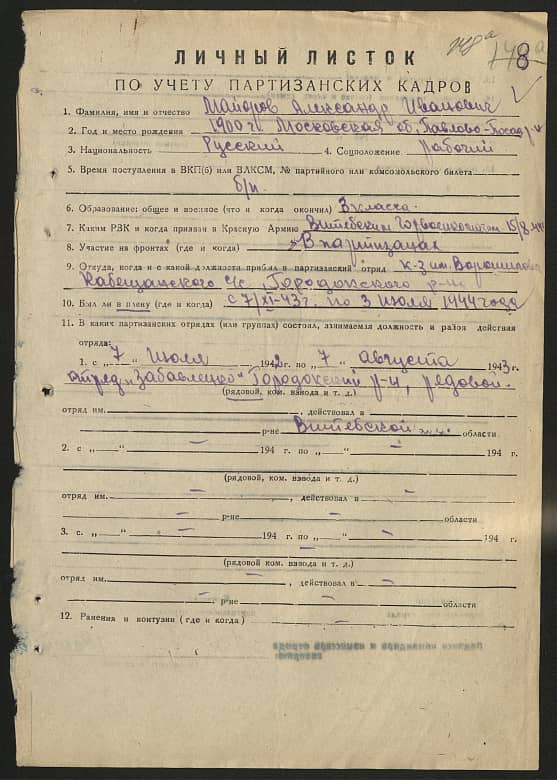 8
ЛИЧНЫЙ ЛИСТОК
ПО УЧЕТУ ПАРТИЗАНСКИХ КАДРОВ
1. Фамилия, имя и отчество Майоров Александр Иванович
2. Год и место рождения 1900 г. Московская об. Павлово-Посад
3. Национальность Русский 4. Соцположение Рабочий
5. Время поступления в ВКП(б) или ВЛКСМ, № партийного или комсомольского билета
б/п.
6. Образование: общее и военное (что и когда окончил) 3 класса.
7. Каким РВК и когда призван в Красную Армию Витебским Горвоенкоматом 15/8
8. Участие на фронтах (где и когда) В партизанах
9. Откуда, когда и с какой должности прибыл в партизанский отряд к-з им. Ворошилова
с/с, Городокского р-на
10. Был ли в плену (где и когда) с 7/XI-43 г. по 3 июля 1944 года
11. В каких партизанских отрядах (или группах) состоял, занимаемая должность и район действия
отряда:
1. с „7“ Июля 1942 г. по „7“ августа 1943 г.
отряд Городокский р-н, рядовой.
(рядовой, ком. взвода и т. д.)
отряд им. , действовал в
р-не Витебской области
2. с „—“ — 194 г. по „—“ — 194 г.
(рядовой, ком. взвода и т. д.)
отряд им. — , действовал в —
— р-не — области
3. с. „—“ — 194 г. по „—“ — 194 г.
(рядовой, ком. взвода и т. д.)
отряд им. — , действовал в —
— р-не — области
12. Ранения и контузии (где и когда) —